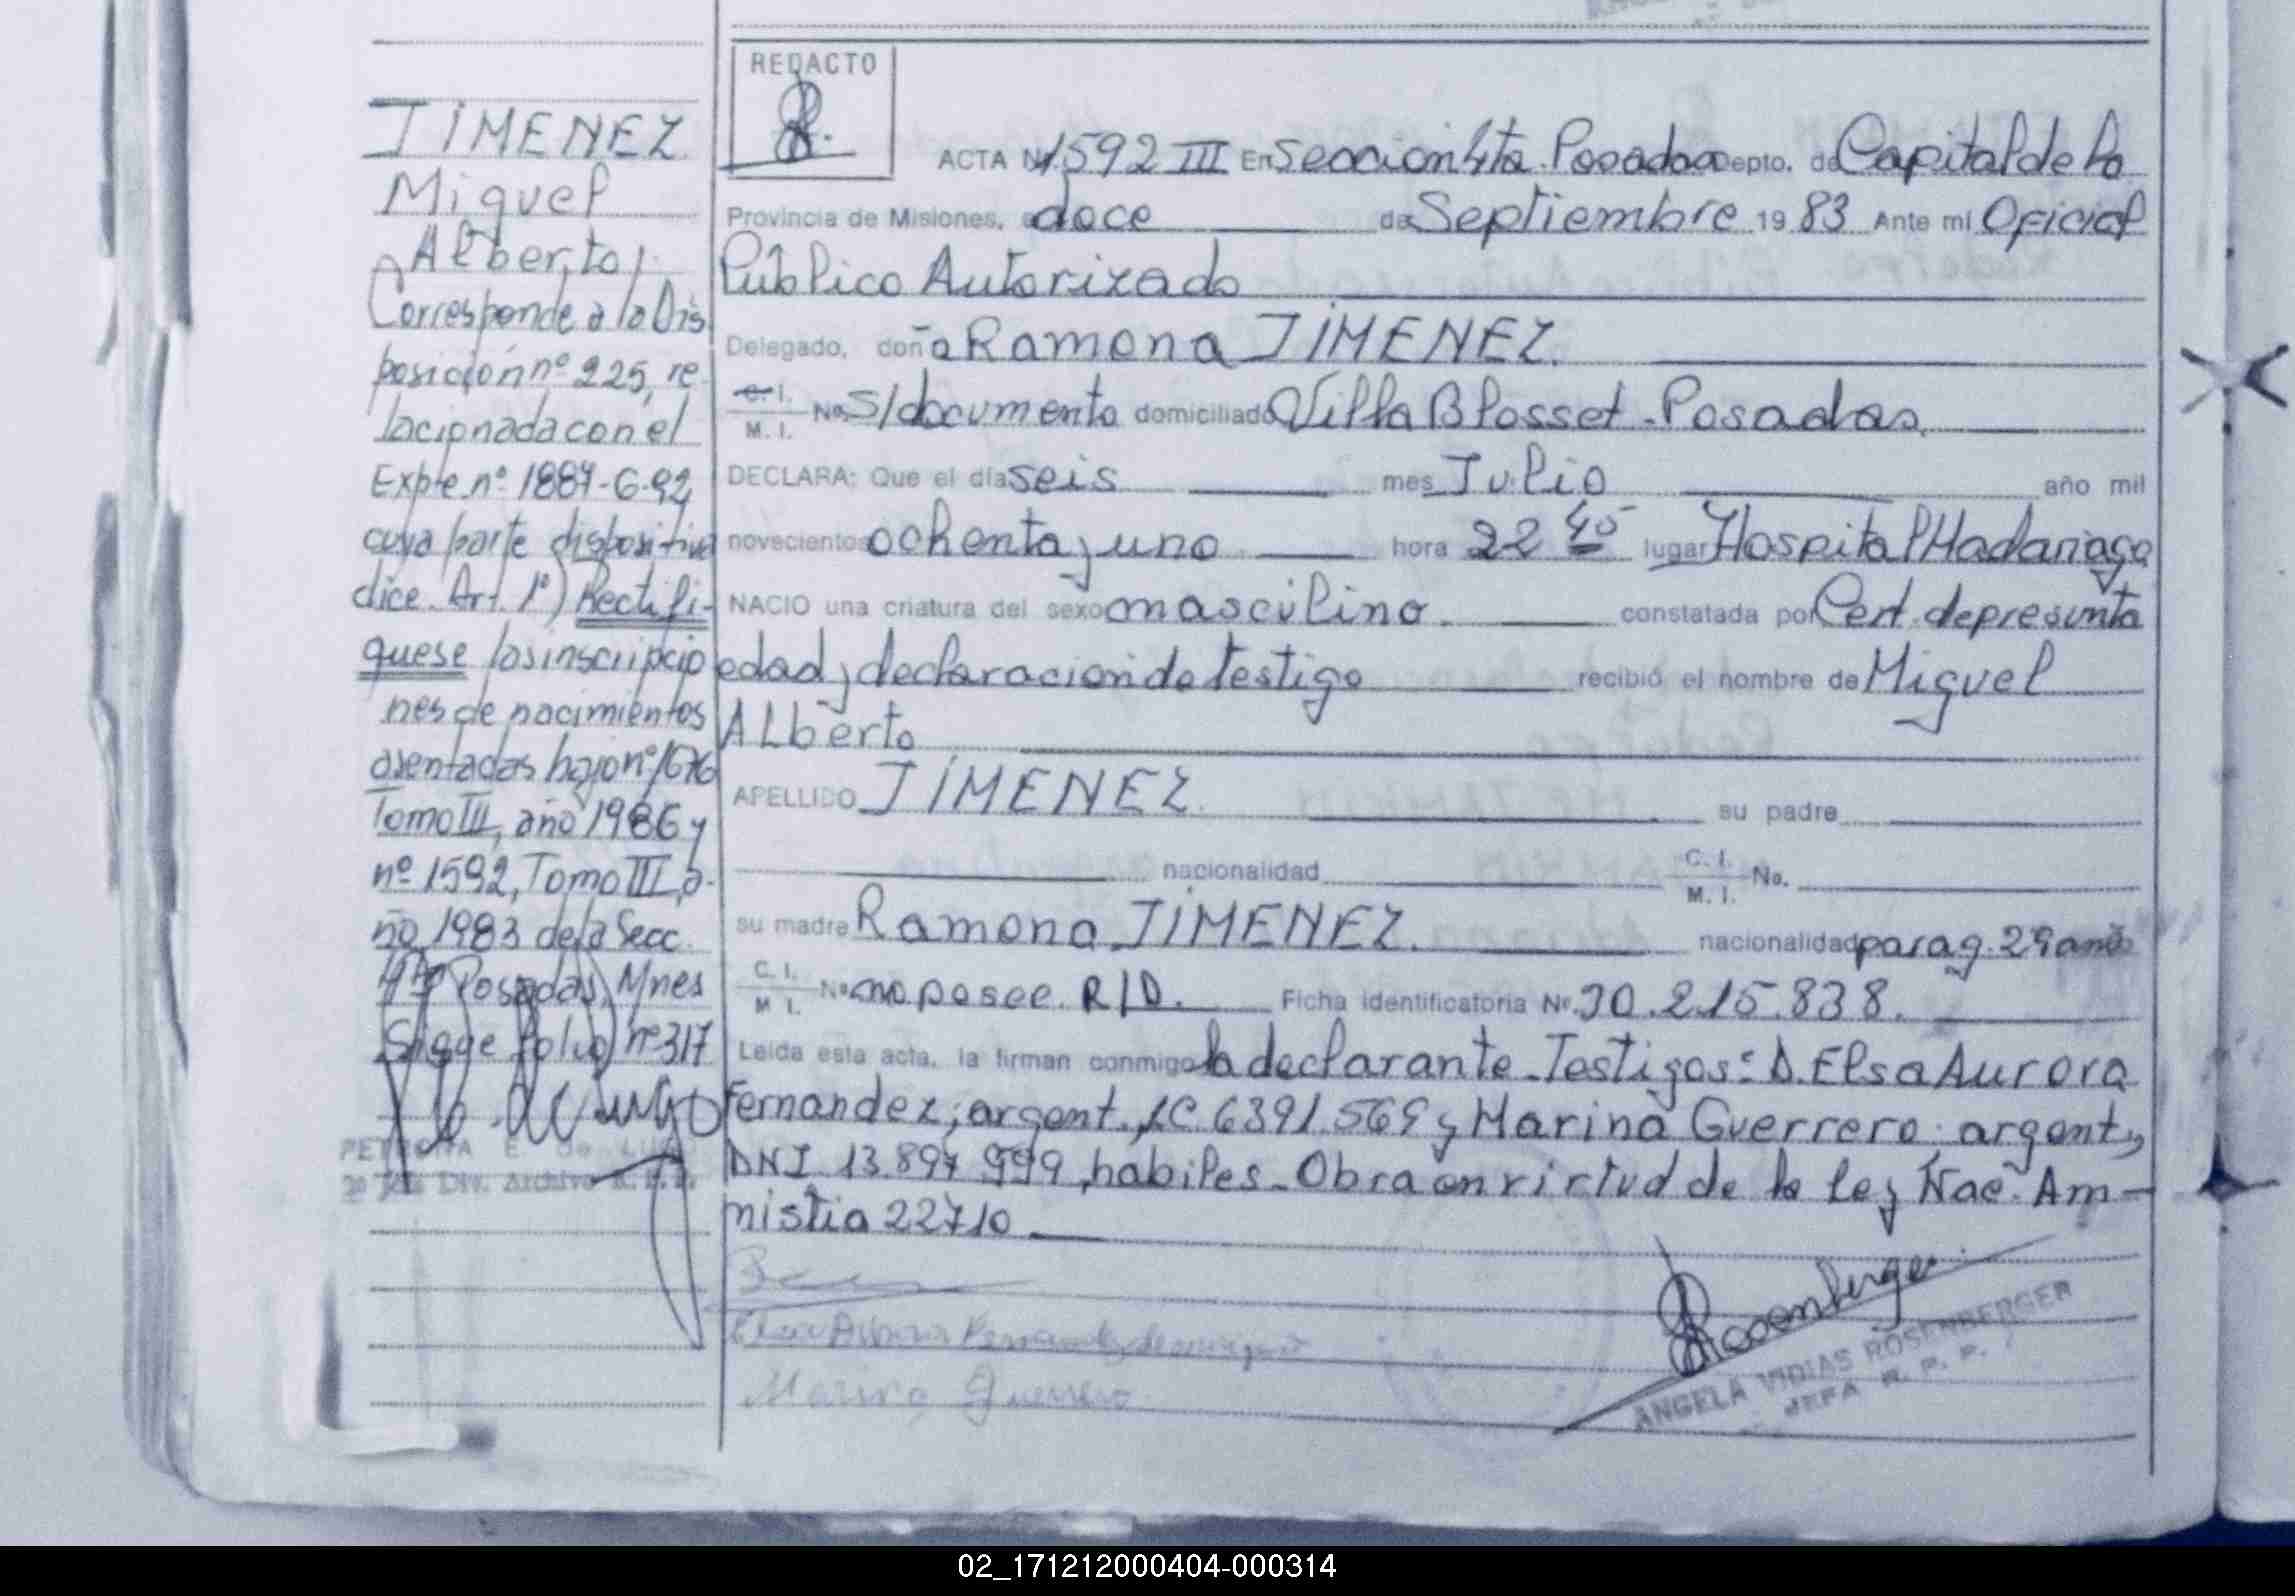 JIMENEZ
Miguel
Alberto
Corresponde a la Dis
posición nº 225, re
lacionada con el
Expte nº 1887-G-92
cuya parte dispositiva
dice. Art. 1º) Rectifi-
quese las inscripcio
nes de nacimientos
asentadas bajo nº 1676
Tomo III, año 1986 y
nº 1592, Tomo III, a-
ño 1983 de la Secc.
4ta Posadas, Mnes
Sigge folio nº 317
PETRONA E. de
2º Jefe Div. Archivo R. P. P.
REDACTO
ACTA Nº 1592 III En Seccion 4ta Posadas Depto. de Capital de la
Provincia de Misiones, a doce de Septiembre 19 83 Ante mi Oficial
Público Autorizado
Delegado, doña Ramona JIMENEZ.
C. I. / M. I. No. S/documento domiciliado Villa Blosset - Posadas.
DECLARA: Que el día seis mes Julio año mil
novecientos ochenta y uno hora 22 45 lugar Hospital Madariaga
NACIO una criatura del sexo masculino. constatada por Cert. de presunta
edad y declaracion de testigo recibió el nombre de Miguel
Alberto
APELLIDO JIMENEZ. su padre
nacionalidad C. I. / M. I. No.
su madre Ramona JIMENEZ. nacionalidad parag. 29 años
C. I. / M. I. Nº no posee. R/D. Ficha identificatoria Nº. 30.215.838.
Leida esta acta, la firman conmigo la declarante - Testigos: D. Elsa Aurora
Fernandez, argent., LC 6391.569 y Marina Guerrero argent,
DNI 13.897 999, habiles - Obra en virtud de la ley Nac. Am-
nistia 22710
Marina Guerrero
Rosenberger
ANGELA VIDIAS ROSENBERGER
JEFA R. P. P.
02_171212000404-000314